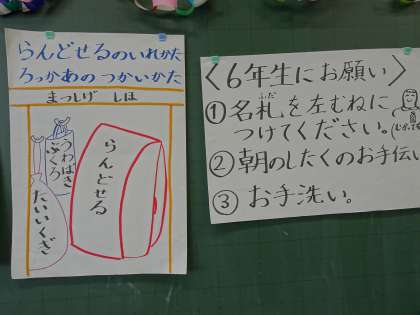 らんどせるのいれかた
ろっかあの つかいかた
まつしげ しほ
らんどせる
うわばき
ぶくろ
たいいくぎ
〈6年生にお願い〉
①名札を左むねに
ふだ
つけてください。
②朝のしたくのお手伝い
③お手洗い。